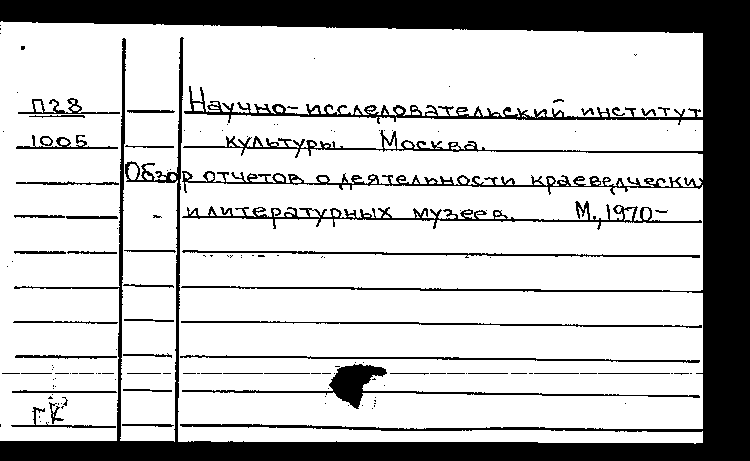 П28
1005
Научно-исследовательский институт
культуры. Москва.
Обзор отчетов о деятельности краеведчески
и литературных музеев. М., 1970-
ГК